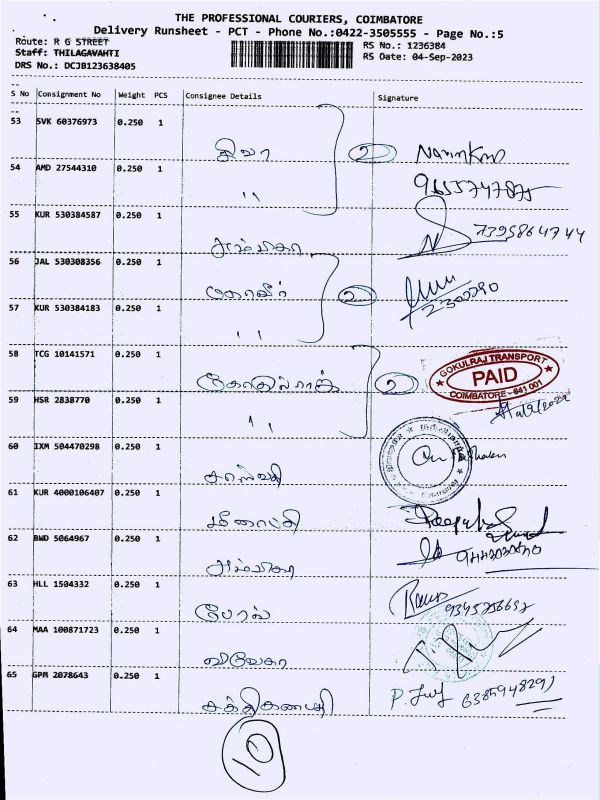 THE PROFESSIONAL COURIERS, COIMBATORE
Delivery Runsheet - PCT - Phone No.:0422-3505555 - Page No.:5
Route: R G STREET
RS No.: 1236384
Staff: THILAGAVAHTI
RS Date: 04-Sep-2023
DRS No.: DCJB123638405
S No Consignment No Weight PCS Consignee Details Signature
53 SVK 60376973 0.250 1
சிவா 2
54 AMD 27544310 0.250 1
" 9655747875
55 KUR 530384587 0.250 1
அம்பிகா 7395864744
56 JAL 530308356 0.250 1
2
57 KUR 530384183 0.250 1
"
58 TCG 10141571 0.250 1
கோகுல்ராஜ் 2
GOKULRAJ TRANSPORT
PAID
COIMBATORE - 641 001
59 HSR 2838770 0.250 1
"
60 IXM 504470298 0.250 1
61 KUR 4000106407 0.250 1
மீனாட்சி
62 BWD 5064967 0.250 1
அம்பிகா
63 HLL 1504332 0.250 1
64 MAA 100871723 0.250 1
விவேகா
65 GPM 2078643 0.250 1
சக்திகணபதி
10